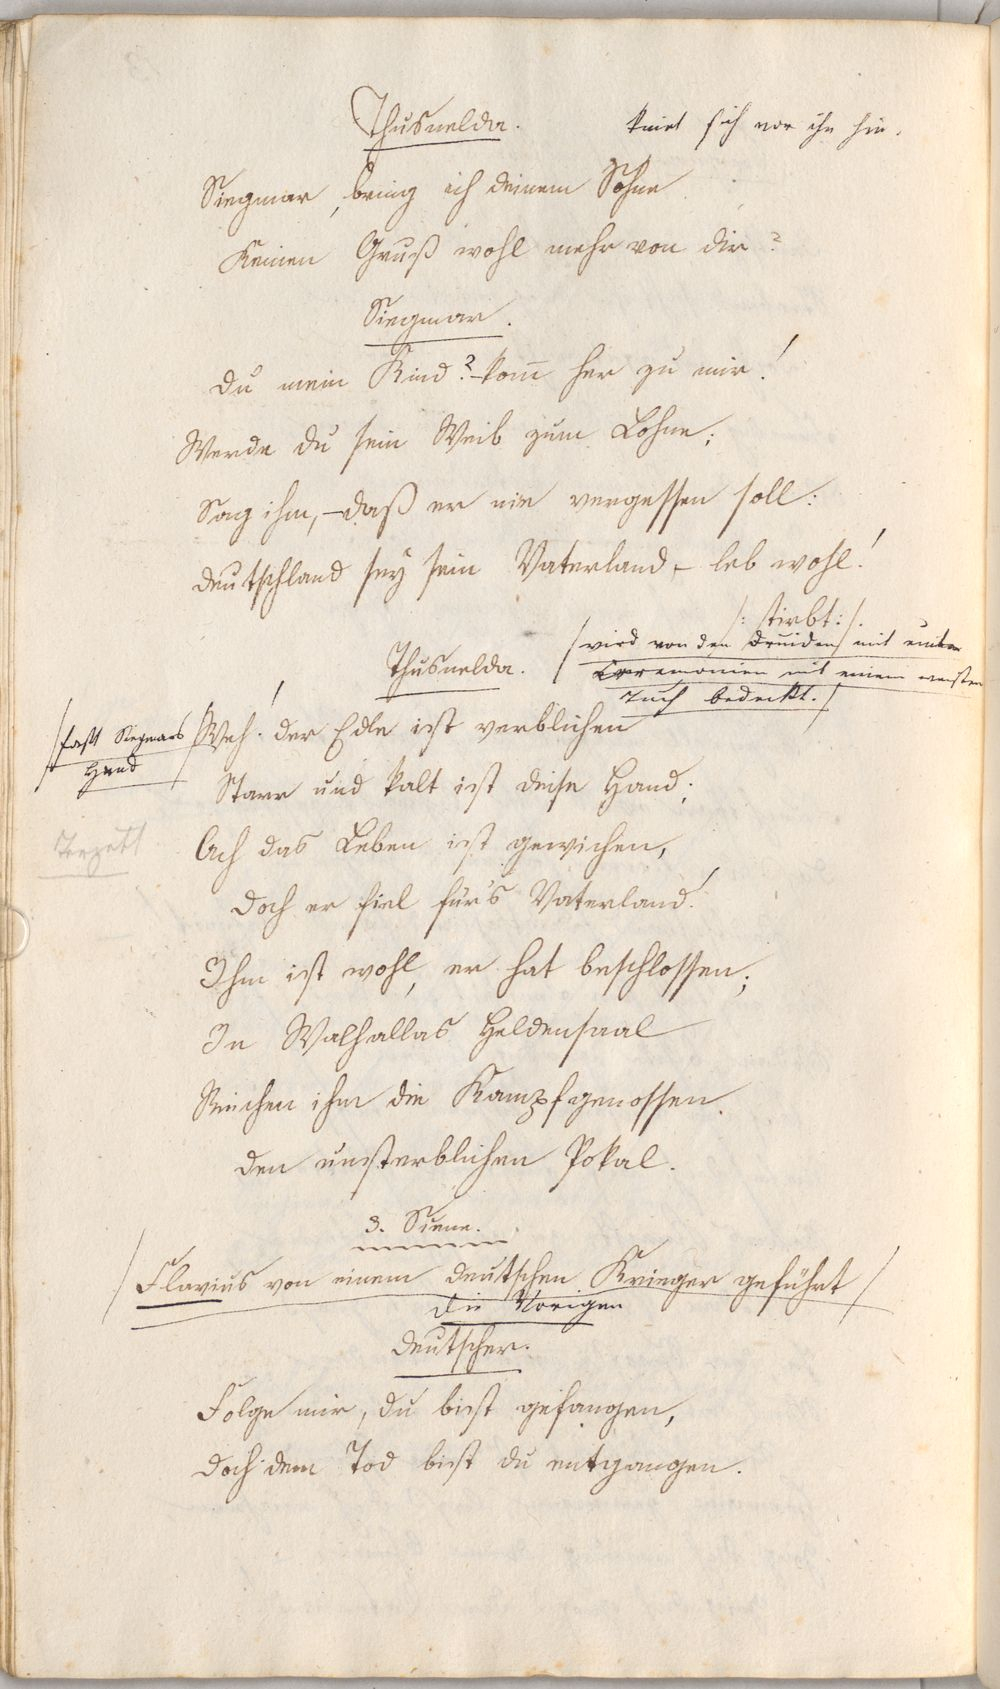 Thusnelda. kniet sich vor ihn hin.
Siegmar, bring ich deinem Sohne
Keinen Gruß wohl mehr von dir?
Siegmar.
Du mein Kind? – kom̄ her zu mir!
Werde du sein Weib zum Lohne;
Sag ihm, – daß er nie vergessen soll:
Deutschland sey sein Vaterland – leb wohl!
/: stirbt :/.
/ wird von den Druiden mit
Thusnelda. Ceremonien mit einem weißen
Tuch bedeckt. /
/ faßt Siegmars Hand / Weh! der Edle ist verblichen
Starr und kalt ist diese Hand;
Terzett Ach das Leben ist gewichen,
Doch er fiel für's Vaterland!
Ihm ist wohl, er hat beschlossen;
In Walhallas Heldensaal
Reichen ihm die Kampfgenossen
Den unsterblichen Pokal.
3. Scene.
/ Flavius von einem deutschen Krieger geführt /
Die Vorigen
Deutscher.
Folge mir, du bist gefangen,
Doch dem Tod bist du entgangen.